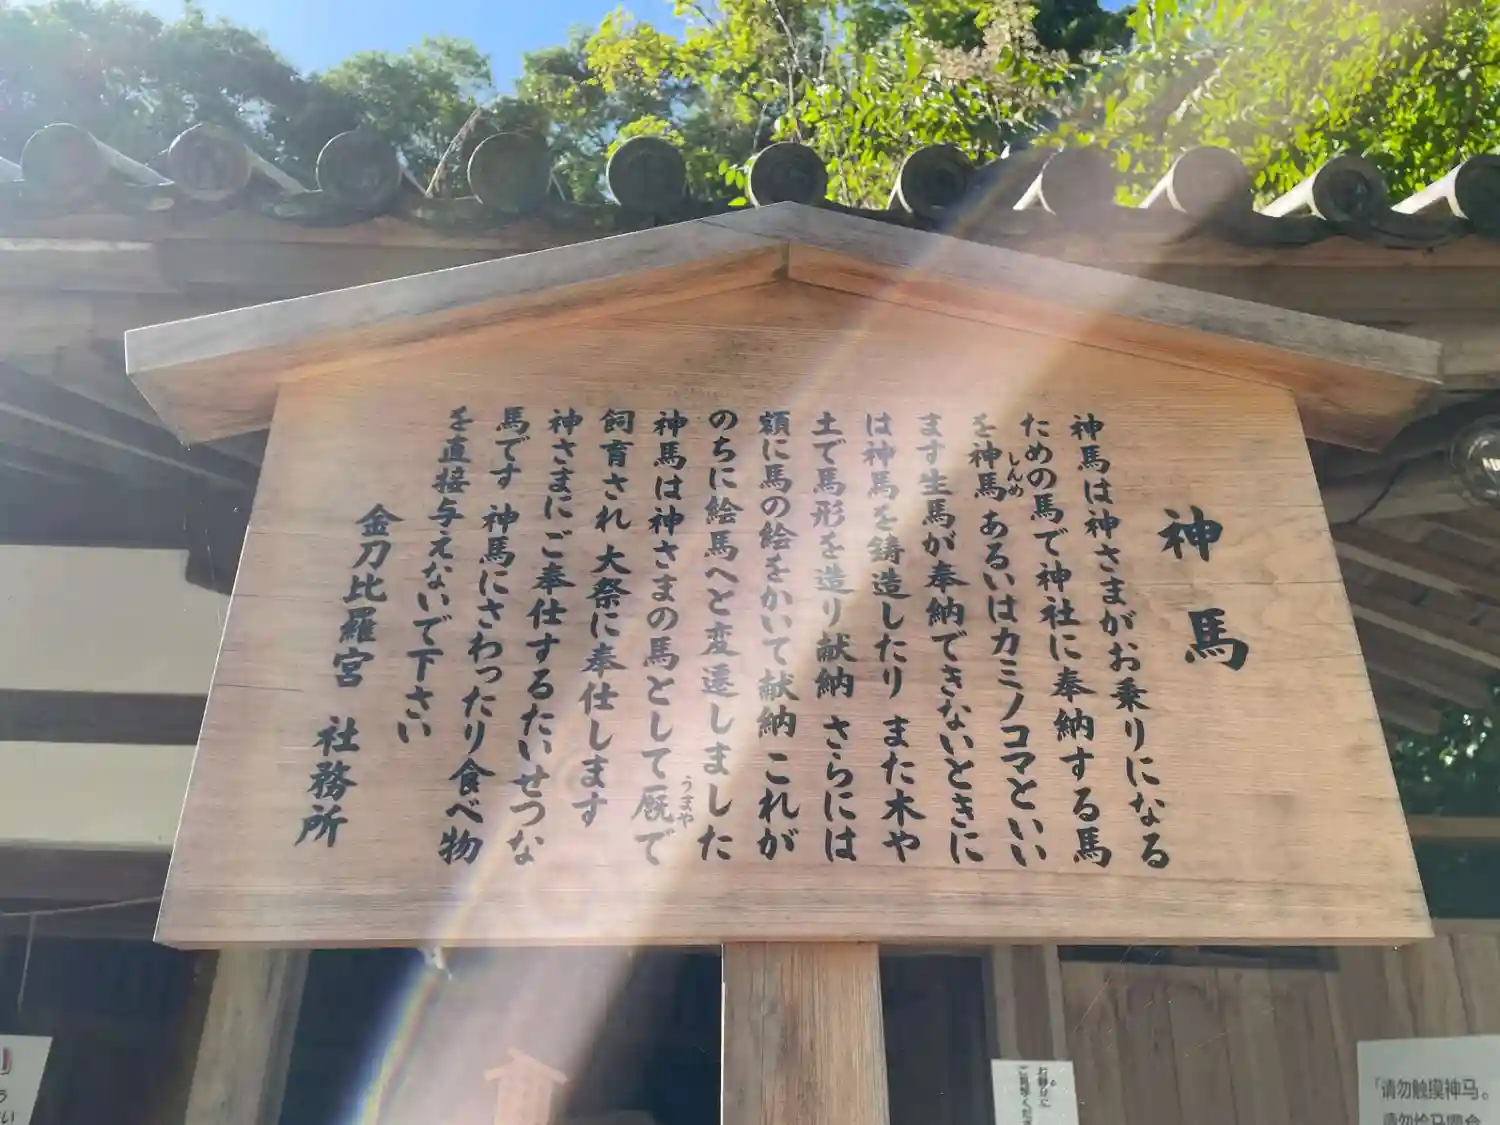 神馬
神馬は神さまがお乗りになる
ための馬で神社に奉納する馬
を神馬 あるいはカミノコマといい
しんめ
ます生馬が奉納できないときに
は神馬を鋳造したり また木や
土で馬形を造り献納 さらには
額に馬の絵をかいて献納 これが
のちに絵馬へと変遷しました
神馬は神さまの馬として厩で
うまや
飼育され 大祭に奉仕します
神さまにご奉仕するたいせつな
馬です 神馬にさわったり食べ物
を直接与えないで下さい
金刀比羅宮 社務所
お静かに
「请勿触摸神马。